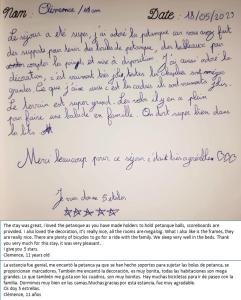 Nom : Clémence / 11 ans Date : 18/05/2023
Le séjour a été super, j'ai adoré la pétanque car vous avez fait
des supports pour tenir des boules de pétanque, des tableaux pour
compter les points est mise à disposition. J'ai aussi adoré la
décoration, c'est vraiment très jolie, toutes les chambres sont
grandes. Ce que j'aime aussi c'est les cadres ils sont vraiment jolis.
Le terrain est super grand. Les vélos il y en a plein
pour faire une balade en famille. On dort super bien dans
le lits
Merci beaucoup pour ce séjour, c'était très agréable.
Je vous donne 5 étoiles
The stay was great, I loved the petanque as you have made holders to hold petanque balls, scoreboards are
provided. I also loved the decoration, it's really nice, all the rooms are megabig. What I also like is the frames, they
are really nice. There are plenty of bicycles to go for a ride with the family. We sleep very well in the beds. Thank
you very much for this stay, it was very pleasant.
I give you 5 stars.
Clemence, 11 years old
La estancia fue genial, me encantó la petanca ya que se han hecho soportes para sujetar las bolas de petanca, se
proporcionan marcadores. También me encantó la decoración, es muy bonita, todas las habitaciones son mega
grandes. Lo que también me gusta son los cuadros, son muy bonitos. Hay muchas bicicletas para ir de paseo con la
familia. Dormimos muy bien en las camas. Muchas gracias por esta estancia, fue muy agradable.
Os doy 5 estrellas.
Clémence, 11 años